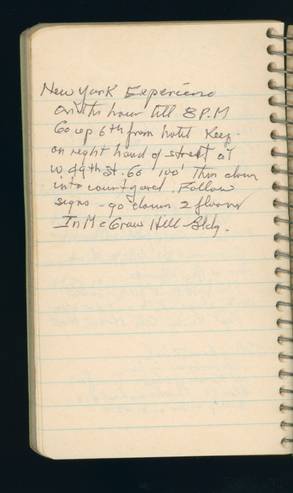 New York Experience
on the hour till 8 P.M
Go up 6th from hotel Keep
on right hand of street at
W 49th St. Go 100' Then down
into courtyard. Follow
signs - go down 2 floors
In McGraw Hill Bldg.